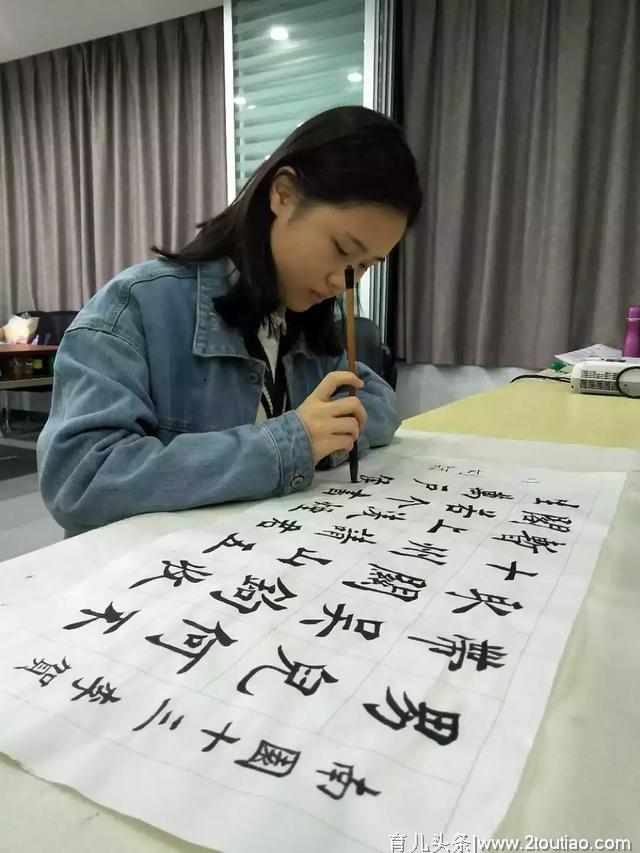 南園十三李賀
男兒何不
帶吳鈎收
取關山五
十州請君
暫上凌煙
閣若个書
生萬戶侯
育儿头条 https://www.2toutiao.com/